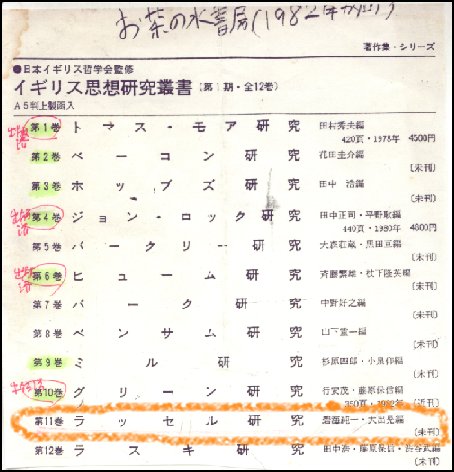 お茶の水書房(1982年
著作集・シリーズ
●日本イギリス哲学会監修
イギリス思想研究叢書(第1期・全12巻)
A5判上製函入
出版済 第1巻 トマス・モア研究 田村秀夫編
420頁・1978年 4500円
第2巻 ベーコン研究 花田圭介編
〔未刊〕
第3巻 ホッブズ研究 田中 浩編
〔未刊〕
出版済 第4巻 ジョン・ロック研究 田中正司・平野耿編
440頁・1980年 4800円
第5巻 バークリー研究 大森荘蔵・黒田亘編
〔未刊〕
出版済 第6巻 ヒューム研究 斉藤繁雄・杖下隆英編
〔未刊〕
第7巻 バーク研究 中野好之編
〔未刊〕
第8巻 ベンサム研究 山下重一編
〔未刊〕
第9巻 ミル研究 杉原四郎・小泉仰編
〔未刊〕
第10巻 グリーン研究 行安茂・藤原保信編
350頁・1982年 〔近刊〕
第11巻 ラッセル研究 碧海純一・大出晃編
〔未刊〕
第12巻 ラスキ研究 田中浩・藤原保信・渋谷武編
〔未刊〕